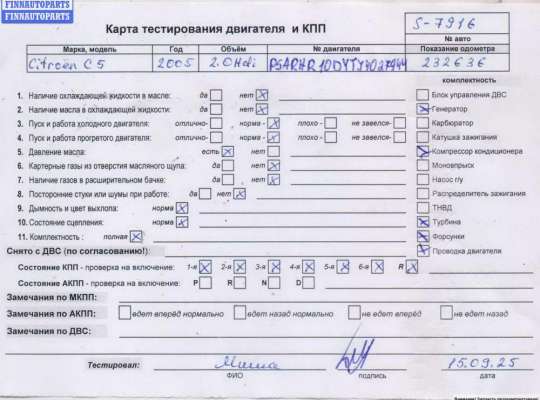 FINNAUTOPARTS
FINNAUTOPARTS
Карта тестирования двигателя и КПП
S-7916
№ авто
Марка, модель Год Объём № двигателя Показание одометра
Citroën C5 2005 2.0Hdi 232636
комплектность
1. Наличие охлаждающей жидкости в масле: да нет
2. Наличие масла в охлаждающей жидкости: да нет
3. Пуск и работа холодного двигателя: отлично- норма - плохо - не завелся-
4. Пуск и работа прогретого двигателя: отлично- норма - плохо - не завелся-
5. Давление масла: есть нет
6. Картерные газы из отверстия масляного щупа: да нет
7. Наличие газов в расширительном бачке: да нет
8. Посторонние стуки или шумы при работе: да нет
9. Дымность и цвет выхлопа: норма
10. Состояние сцепления: норма
11. Комплектность : полная
Блок управления ДВС
Генератор
Карбюратор
Катушка зажигания
Компрессор кондиционера
Моновпрыск
Насос г/у
Распределитель зажигания
ТНВД
Турбина
Форсунки
Проводка двигателя
Снято с ДВС (по согласованию!):
Состояние КПП - проверка на включение: 1-я 2-я 3-я 4-я 5-я 6-я R
Состояние АКПП - проверка на включение: P R N D
Замечания по МКПП:
Замечания по АКПП: едет вперёд нормально едет назад нормально не едет вперёд не едет назад
Замечания по ДВС:
Тестировал: Миша 15.09.25
ФИО подпись дата